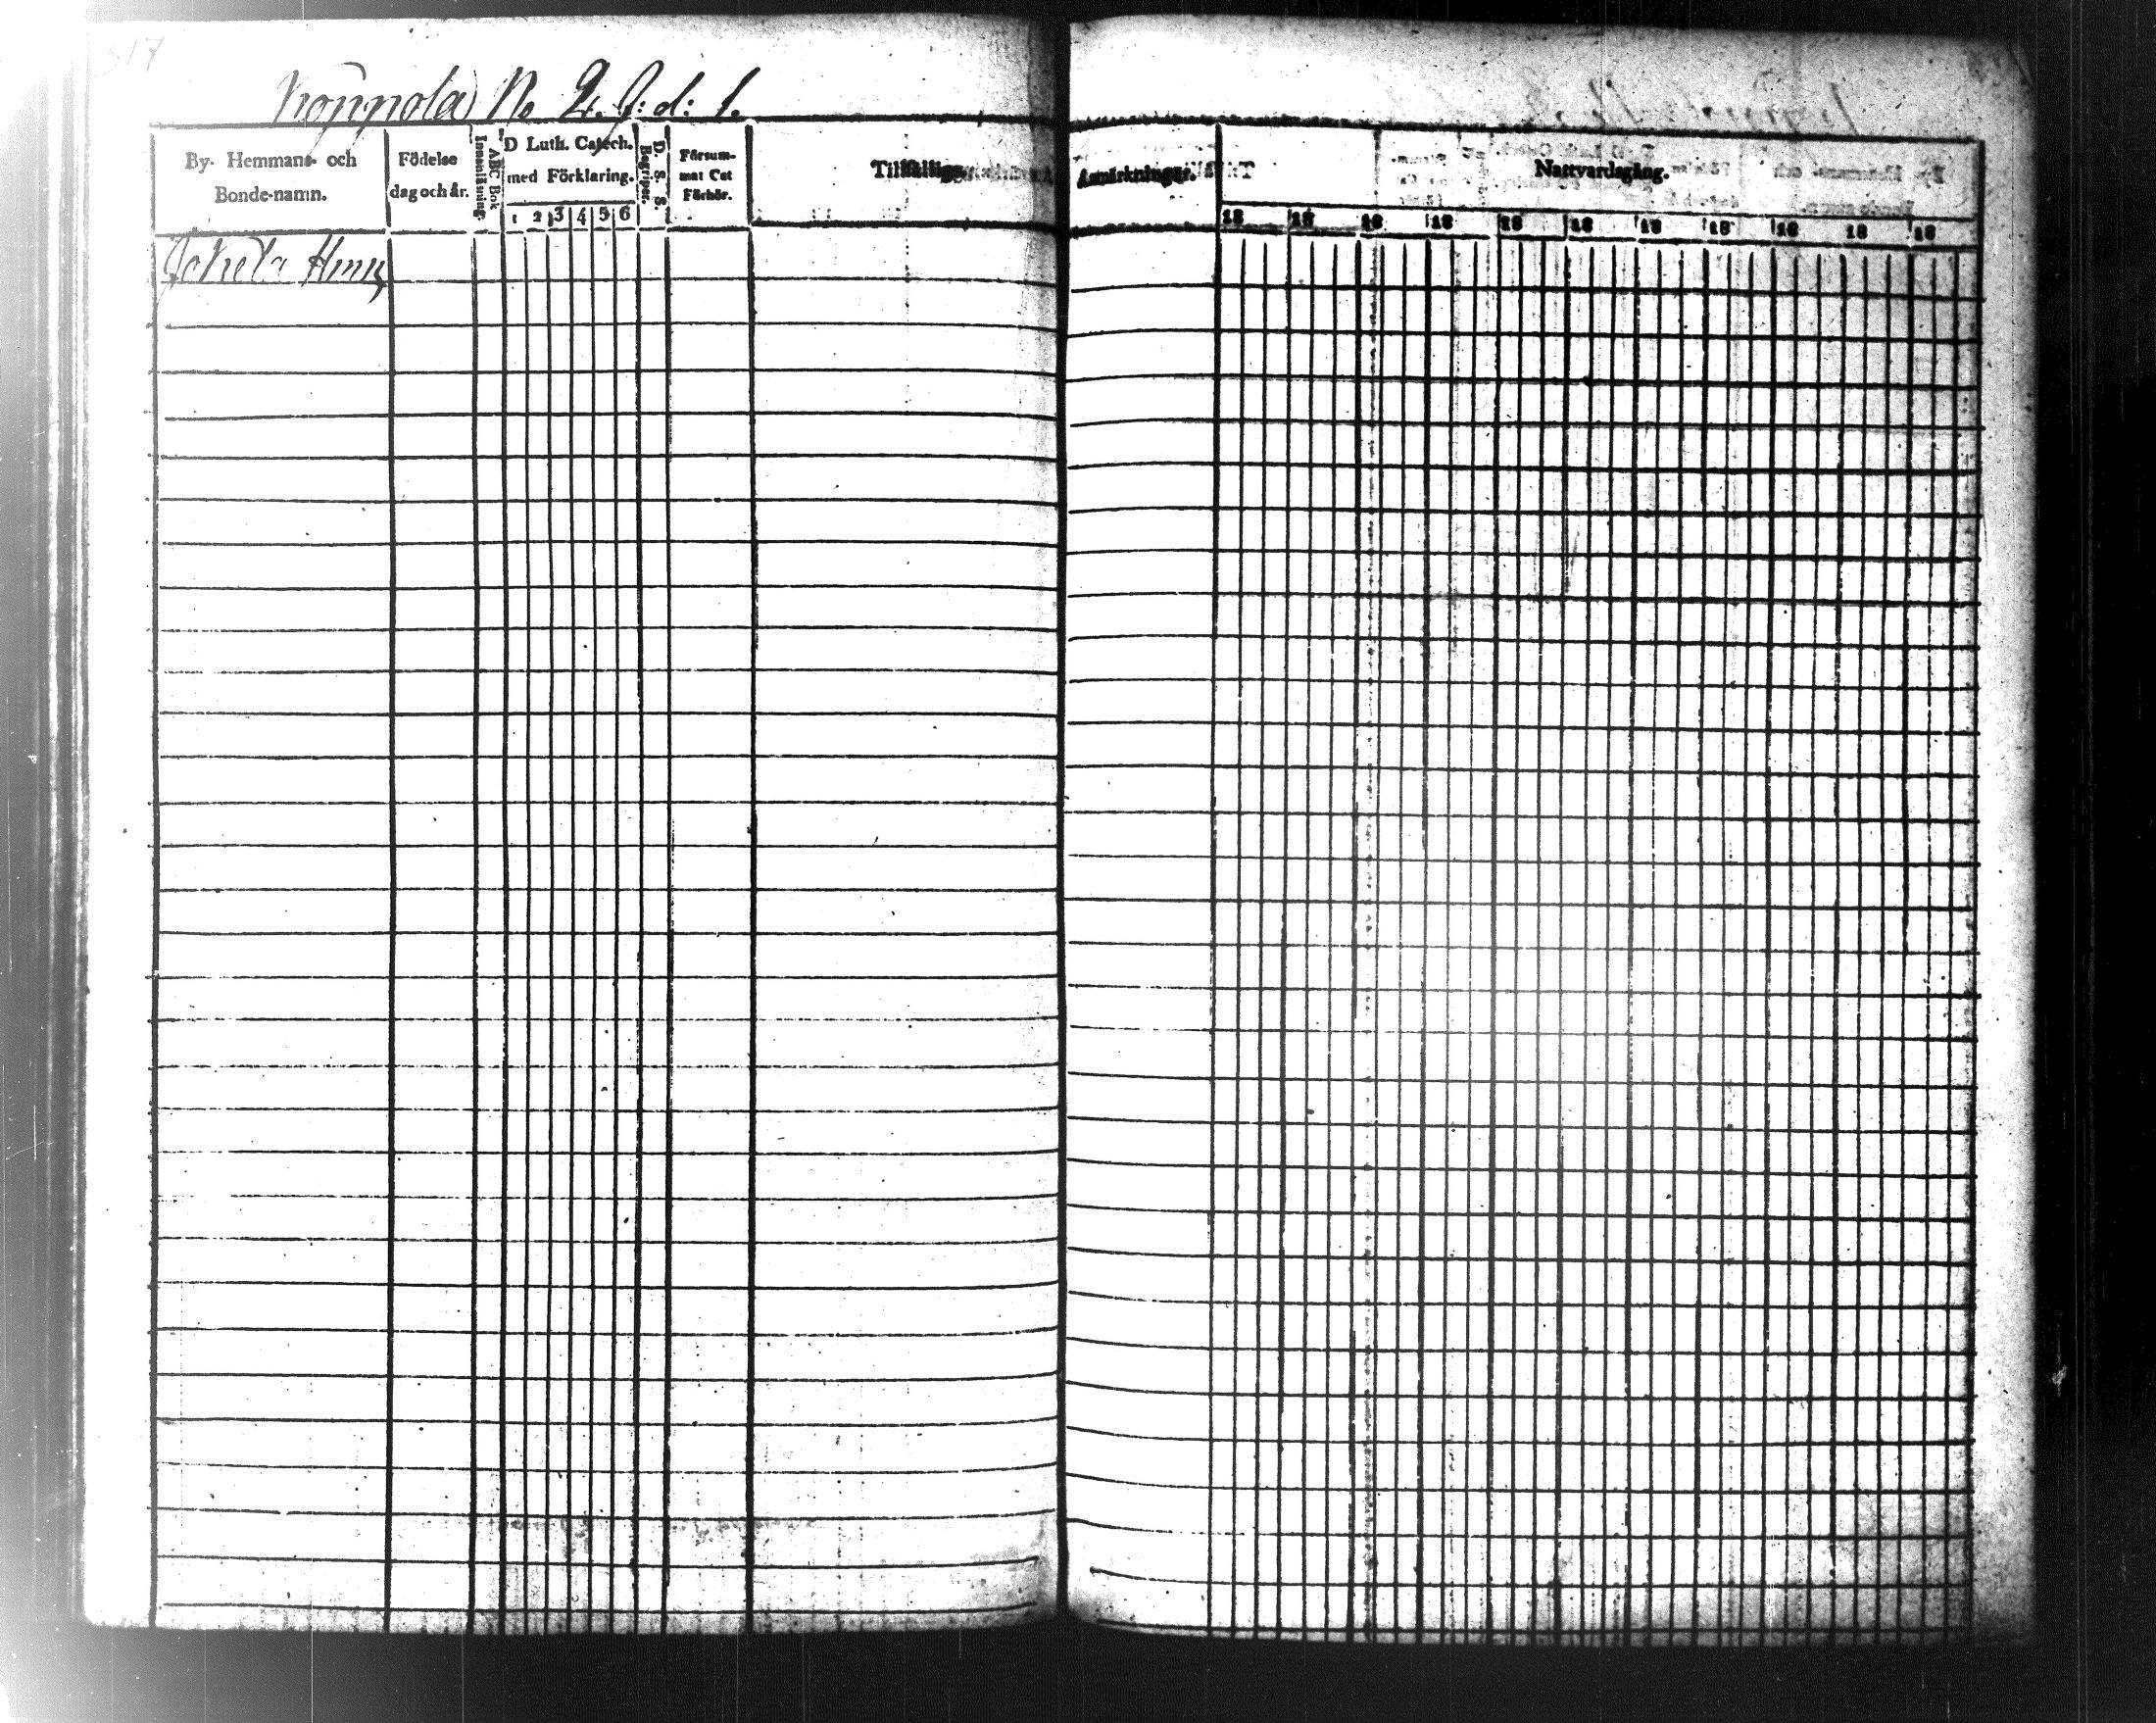 317
Koppola No 2. J: d: 1.
By- Hemmans- och Bonde-namn.
Födelse dag och år.
ABC Bok
Innanläsning.
D Luth. Catech. med Förklaring.
1 2 3 4 5 6
D. S. S. Begriper.
Försummat Cat Förhör.
Tillfällige
Anmärkningar.
Nattvardsgång.
18 18 18 18 18 18 18 18 18 18 18
Jokela Hem